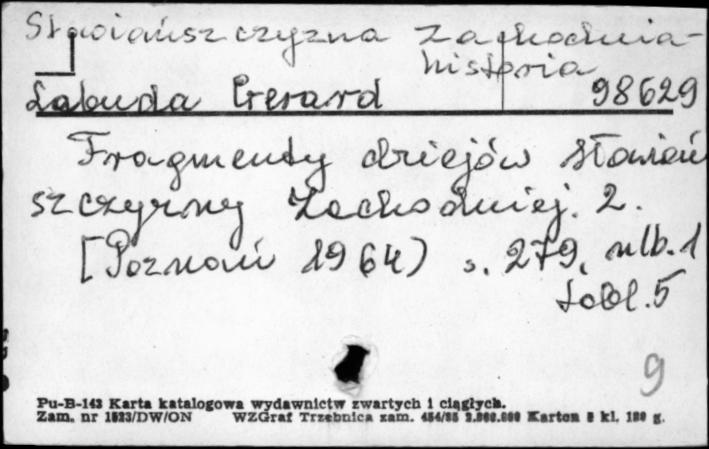 Słowiańszczyzna Zachodnia-
historia
Labuda Gerard 98629
Fragmenty dziejów Słowiań
szczyzny Zachodniej. 2.
[Poznań 1964) s. 279, nlb. 1
tabl. 5
9
Pu-B-143 Karta katalogowa wydawnictw zwartych i ciągłych.
Zam. nr 1523/DW/ON WZGraf Trzebnica zam. 454/85 2.000.000 Karton 3 kl. 180 g.